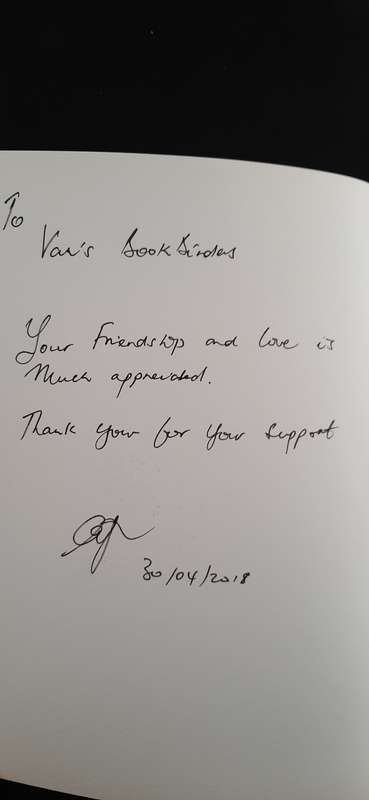 To
Van's BookBinders
Your Friendship and love is
Much appreciated.
Thank you for your support
30/04/2018